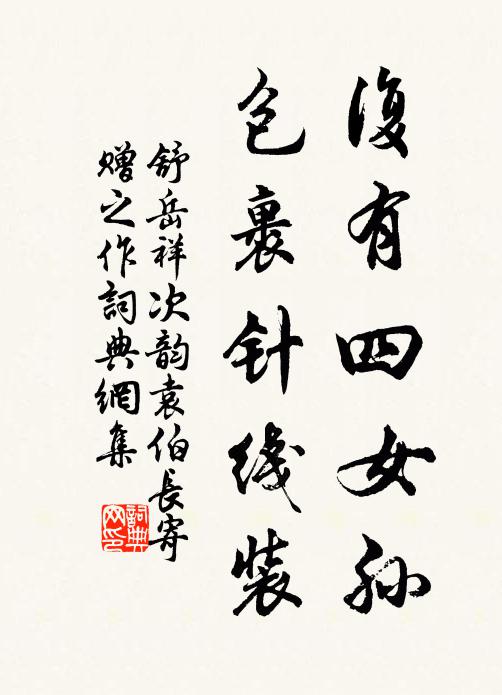 復有四女孙
包裹针线装
舒岳祥次韵袁伯長寄
赠之作詞典網集
詞典网印